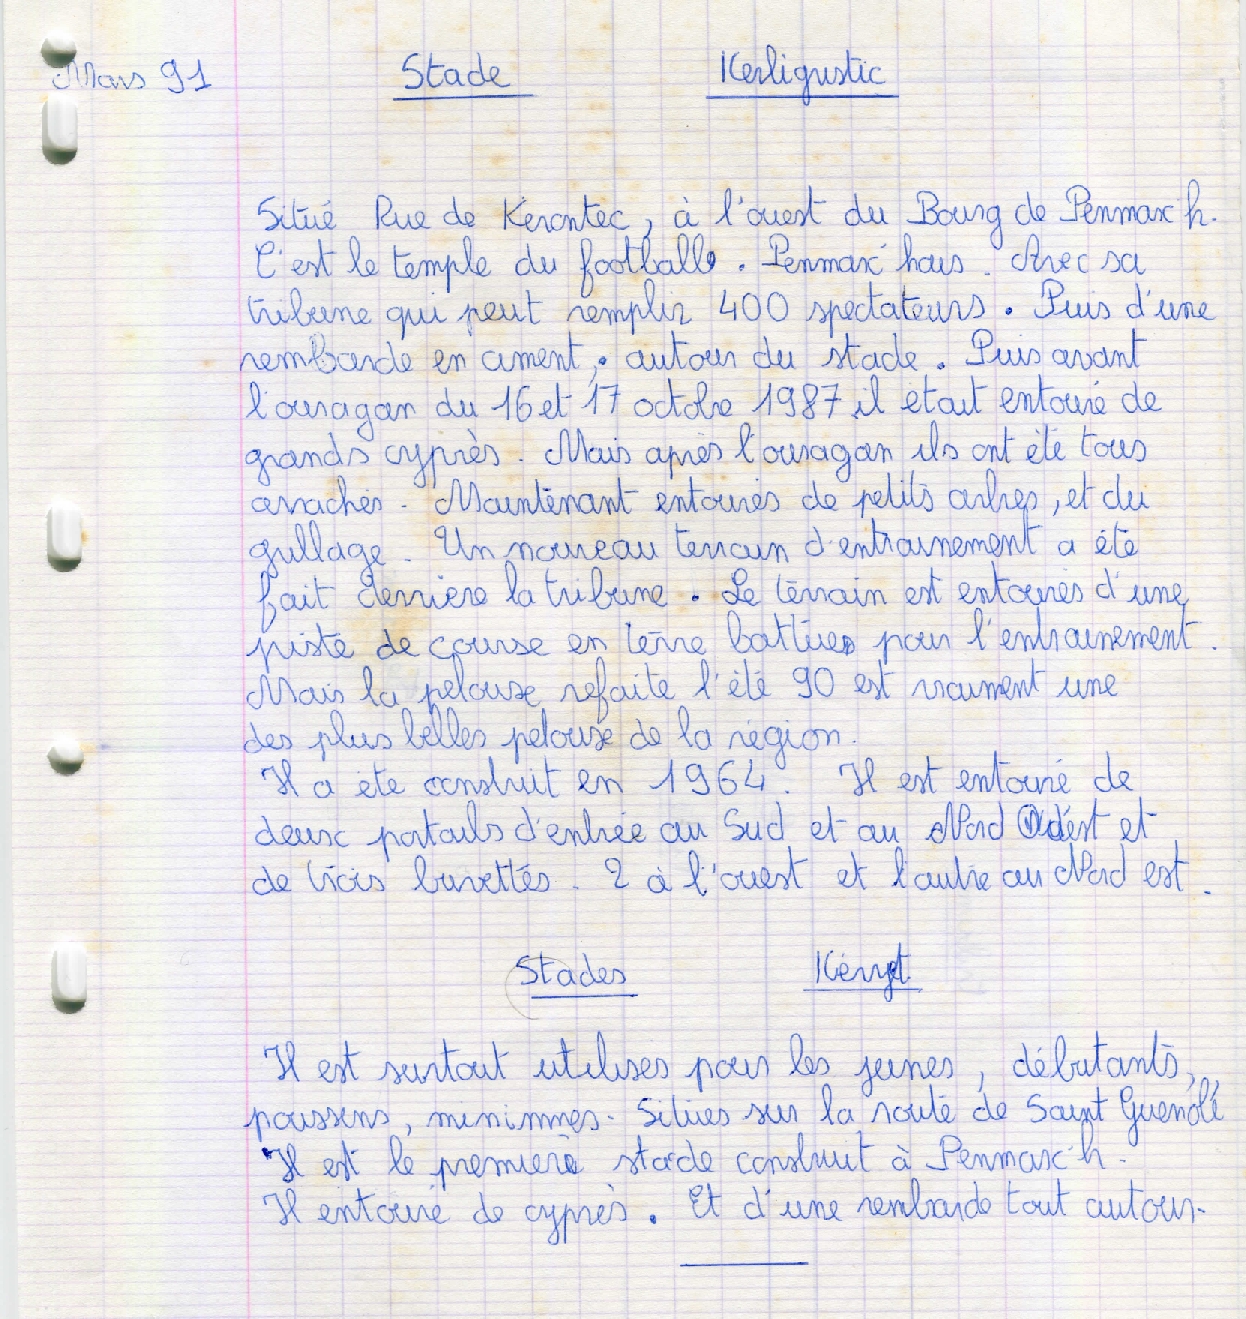 Mars 91 Stade Kerligustic
Situé Rue de Kerontec, à l'ouest du Bourg de Penmarc'h.
C'est le temple du football. Penmarc'hais. Avec sa
tribune qui peut remplir 400 spectateurs. Puis d'une
rembarde en ciment, autour du stade. Puis avant
l'ouragan du 16 et 17 octobre 1987 il était entouré de
grands cyprès. Mais après l'ouragan ils ont été tous
arrachés. Maintenant entourés de petits arbres, et du
grillage. Un nouveau terrain d'entrainement a été
fait derrière la tribune. Le terrain est entourés d'une
piste de course en terre battue pour l'entrainement.
Mais la pelouse refaite l'été 90 est vraiment une
des plus belles pelouse de la région.
Il a été construit en 1964. Il est entouré de
deux portails d'entrée au Sud et au Nord et
de trois buvettes. 2 à l'ouest et l'autre au Nord est.
Stades
Il est surtout utilises pour les jeunes, débutants,
poussins, minimmes. Situes sur la route de Saint Guenolé
Il est le première stade construit à Penmarc'h.
Il entouré de cyprès. Et d'une rembarde tout autour.